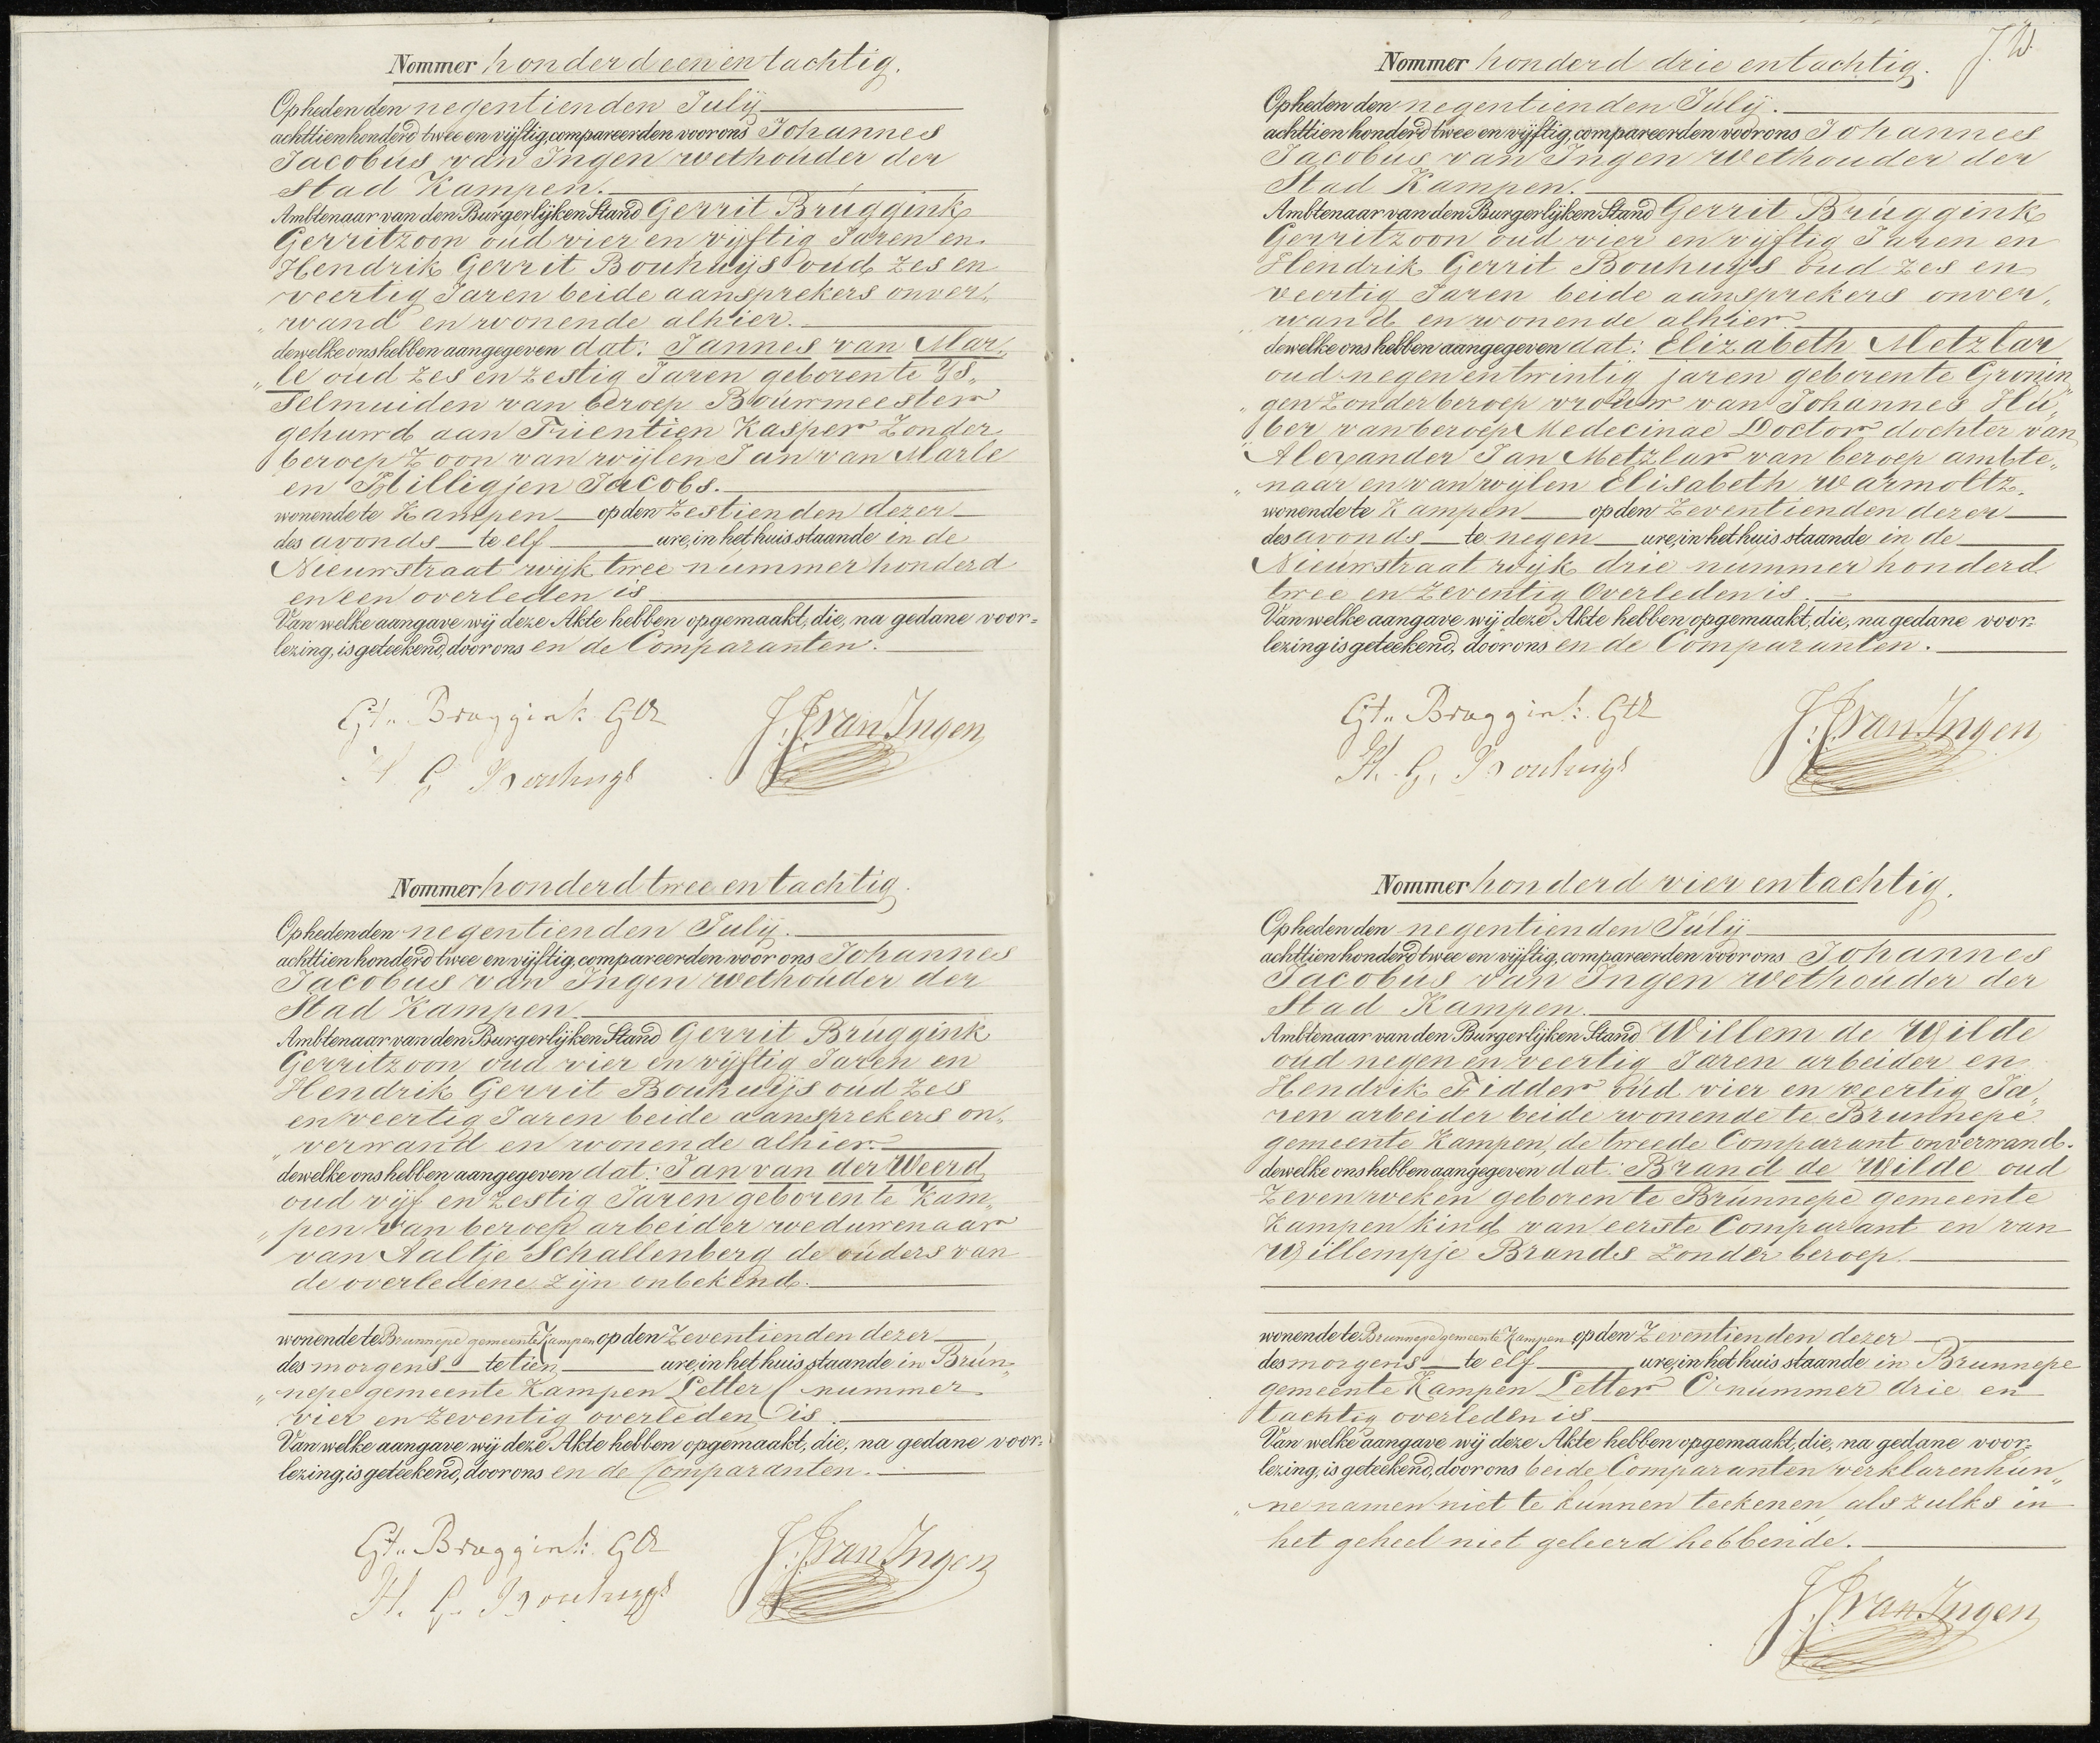 Nommer honderd een en tachtig.
Op heden den negentienden Julij
achttien honderd twee en vijftig, compareerden voor ons Johannes
Jacobus van Ingen wethouder der
Stad Kampen.
Ambtenaar van den Burgerlijken Stand Gerrit Bruggink
Gerritzoon oud vier en vijftig Jaren en
Hendrik Gerrit Bouhuijs oud zes en
veertig Jaren beide aansprekers onver„
„wand en wonende alhier.
dewelke ons hebben aangegeven dat: Jannes van Mar„
„le oud zes en zestig Jaren geboren te Ys„
selmuiden van beroep Bouwmeester
gehuwd aan Trientien Kasper Zonder
beroep Zoon van wijlen Jan van Marle
en Hilligjen Jacobs.
wonende te Kampen op den Zestienden dezer
des avonds te elf ure, in het huis staande in de
Nieuwstraat wijk twee nummer honderd
en een overleden is
Van welke aangave wij deze Akte hebben opgemaakt, die, na gedane voor=
lezing, is geteekend, door ons en de Comparanten.
Gt.. Bruggink GZ
H G Bouhuijs
J. J. van Ingen
Nommer honderd twee en tachtig.
Op heden den negentienden Julij.
achttien honderd twee en vijftig, compareerden voor ons Johannes
Jacobus van Ingen wethouder der
Stad Kampen.
Ambtenaar van den Burgerlijken Stand Gerrit Bruggink
Gerritzoon oud vier en vijftig Jaren en
Hendrik Gerrit Bouhuijs oud zes
en veertig Jaren beide aansprekers on„
„verwand en wonende alhier.
dewelke ons hebben aangegeven dat: Jan van der Weerd
oud vijf en zestig Jaren geboren te Kam„
„pen van beroep arbeider weduwenaar
van Aaltje Schallenberg de ouders van
de overledene zijn onbekend.
wonende te Brunnepe gemeente Kampen op den Zeventienden dezer
des morgens te tien ure, in het huis staande in Brun„
„nepe gemeente Kampen Letter C nummer
vier en zeventig overleden is.
Van welke aangave wij deze Akte hebben opgemaakt, die, na gedane voor=
lezing, is geteekend, door ons en de Comparanten.
Gt.. Bruggink GZ
H. G. Bouhuijs
J. J. van Ingen
J. W.
Nommer honderd drie en tachtig.
Op heden den negentienden Julij.
achttien honderd twee en vijftig, compareerden voor ons Johannes
Jacobus van Ingen Wethouder der
Stad Kampen.
Ambtenaar van den Burgerlijken Stand Gerrit Bruggink
Gerritzoon oud vier en vijftig Jaren en
Hendrik Gerrit Bouhuijs oud zes en
veertig Jaren beide aansprekers onver„
„wand en wonende alhier
dewelke ons hebben aangegeven dat: Elizabeth Metzlar
oud negen en twintig jaren geboren te Gronin„
„gen Zonder beroep vrouw van Johannes Hu„
„ber van beroep Medecinae Doctor dochter van
Alexander Jan Metzlar van beroep ambte„
„naar en van wijlen Elisabeth Warmoltz.
wonende te Kampen op den Zeventienden dezer
des avonds te negen ure, in het huis staande in de
Nieuwstraat wijk drie nummer honderd
twee en zeventig Overleden is.
Van welke aangave wij deze Akte hebben opgemaakt, die, na gedane voor=
lezing is geteekend, door ons en de Comparanten.
Gt.. Bruggink GZ
H. G. Bouhuijs
J. J. van Ingen
Nommer honderd vier en tachtig.
Op heden den negentienden Julij
achttien honderd twee en vijftig, compareerden voor ons Johannes
Jacobus van Ingen wethouder der
Stad Kampen.
Ambtenaar van den Burgerlijken Stand Willem de Wilde
oud negen en veertig Jaren arbeider en
Hendrik Fidder oud vier en veertig Ja„
ren arbeider beide wonende te Brunnepe
gemeente Kampen, de tweede Comparant onverwand.
dewelke ons hebben aangegeven dat: Brand de Wilde oud
Zeven weken geboren te Brunnepe gemeente
Kampen kind van eerste Comparant en van
Willempje Brands Zonder beroep.
wonende te Brunnepe gemeente Kampen op den Zeventienden dezer
des morgens te elf ure, in het huis staande in Brunnepe
gemeente Kampen Letter C nummer drie en
tachtig overleden is
Van welke aangave wij deze Akte hebben opgemaakt, die, na gedane voor=
lezing, is geteekend, door ons beide Comparanten verklaren hun„
„ne namen niet te kunnen teekenen, als zulks in
het geheel niet geleerd hebbende.
J. J. van Ingen